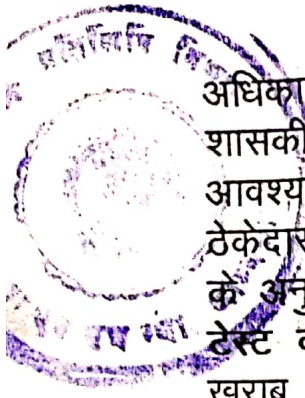 प्रतिलिपि
अधिका
शासकी
आवश्य
ठेकेदार
के अनु
टेस्ट
खराब